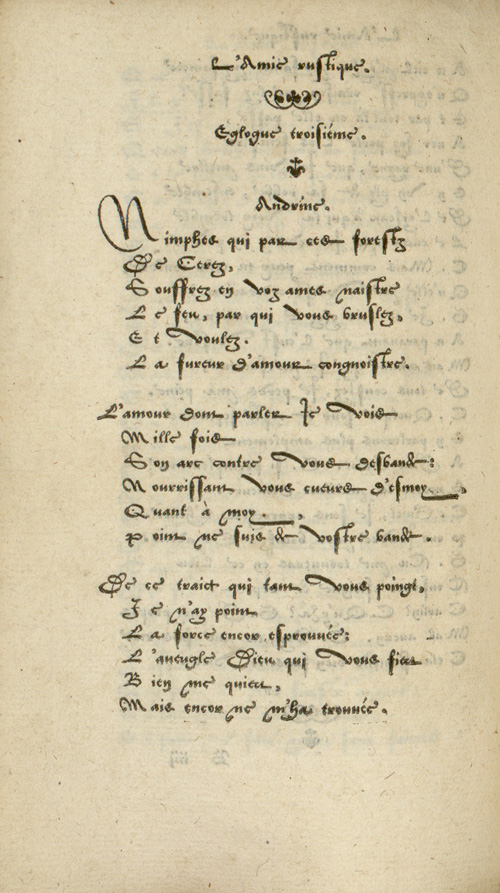 L'Amie rustique.
Eglogue troisiéme.
Andrine.
Nimphes qui par ces forestz
De Cerez,
Souffrez en voz ames naistre
Le feu, par qui vous bruslez,
Et voulez.
La fureur d'amour congnoistre.
L'amour dont parler Je vois
Mille fois
Son arc contre vous desbande:
Nourrissant vous cueurs d'esmoy,
Quant à moy,
Point ne suis de vostre bande.
De ce traict qui tant vous poingt,
Je n'ay point
La force encor esprouvée:
L'aveugle Dieu qui vous fiert
Bien me quiert,
Mais encor ne m'ha trouvée.